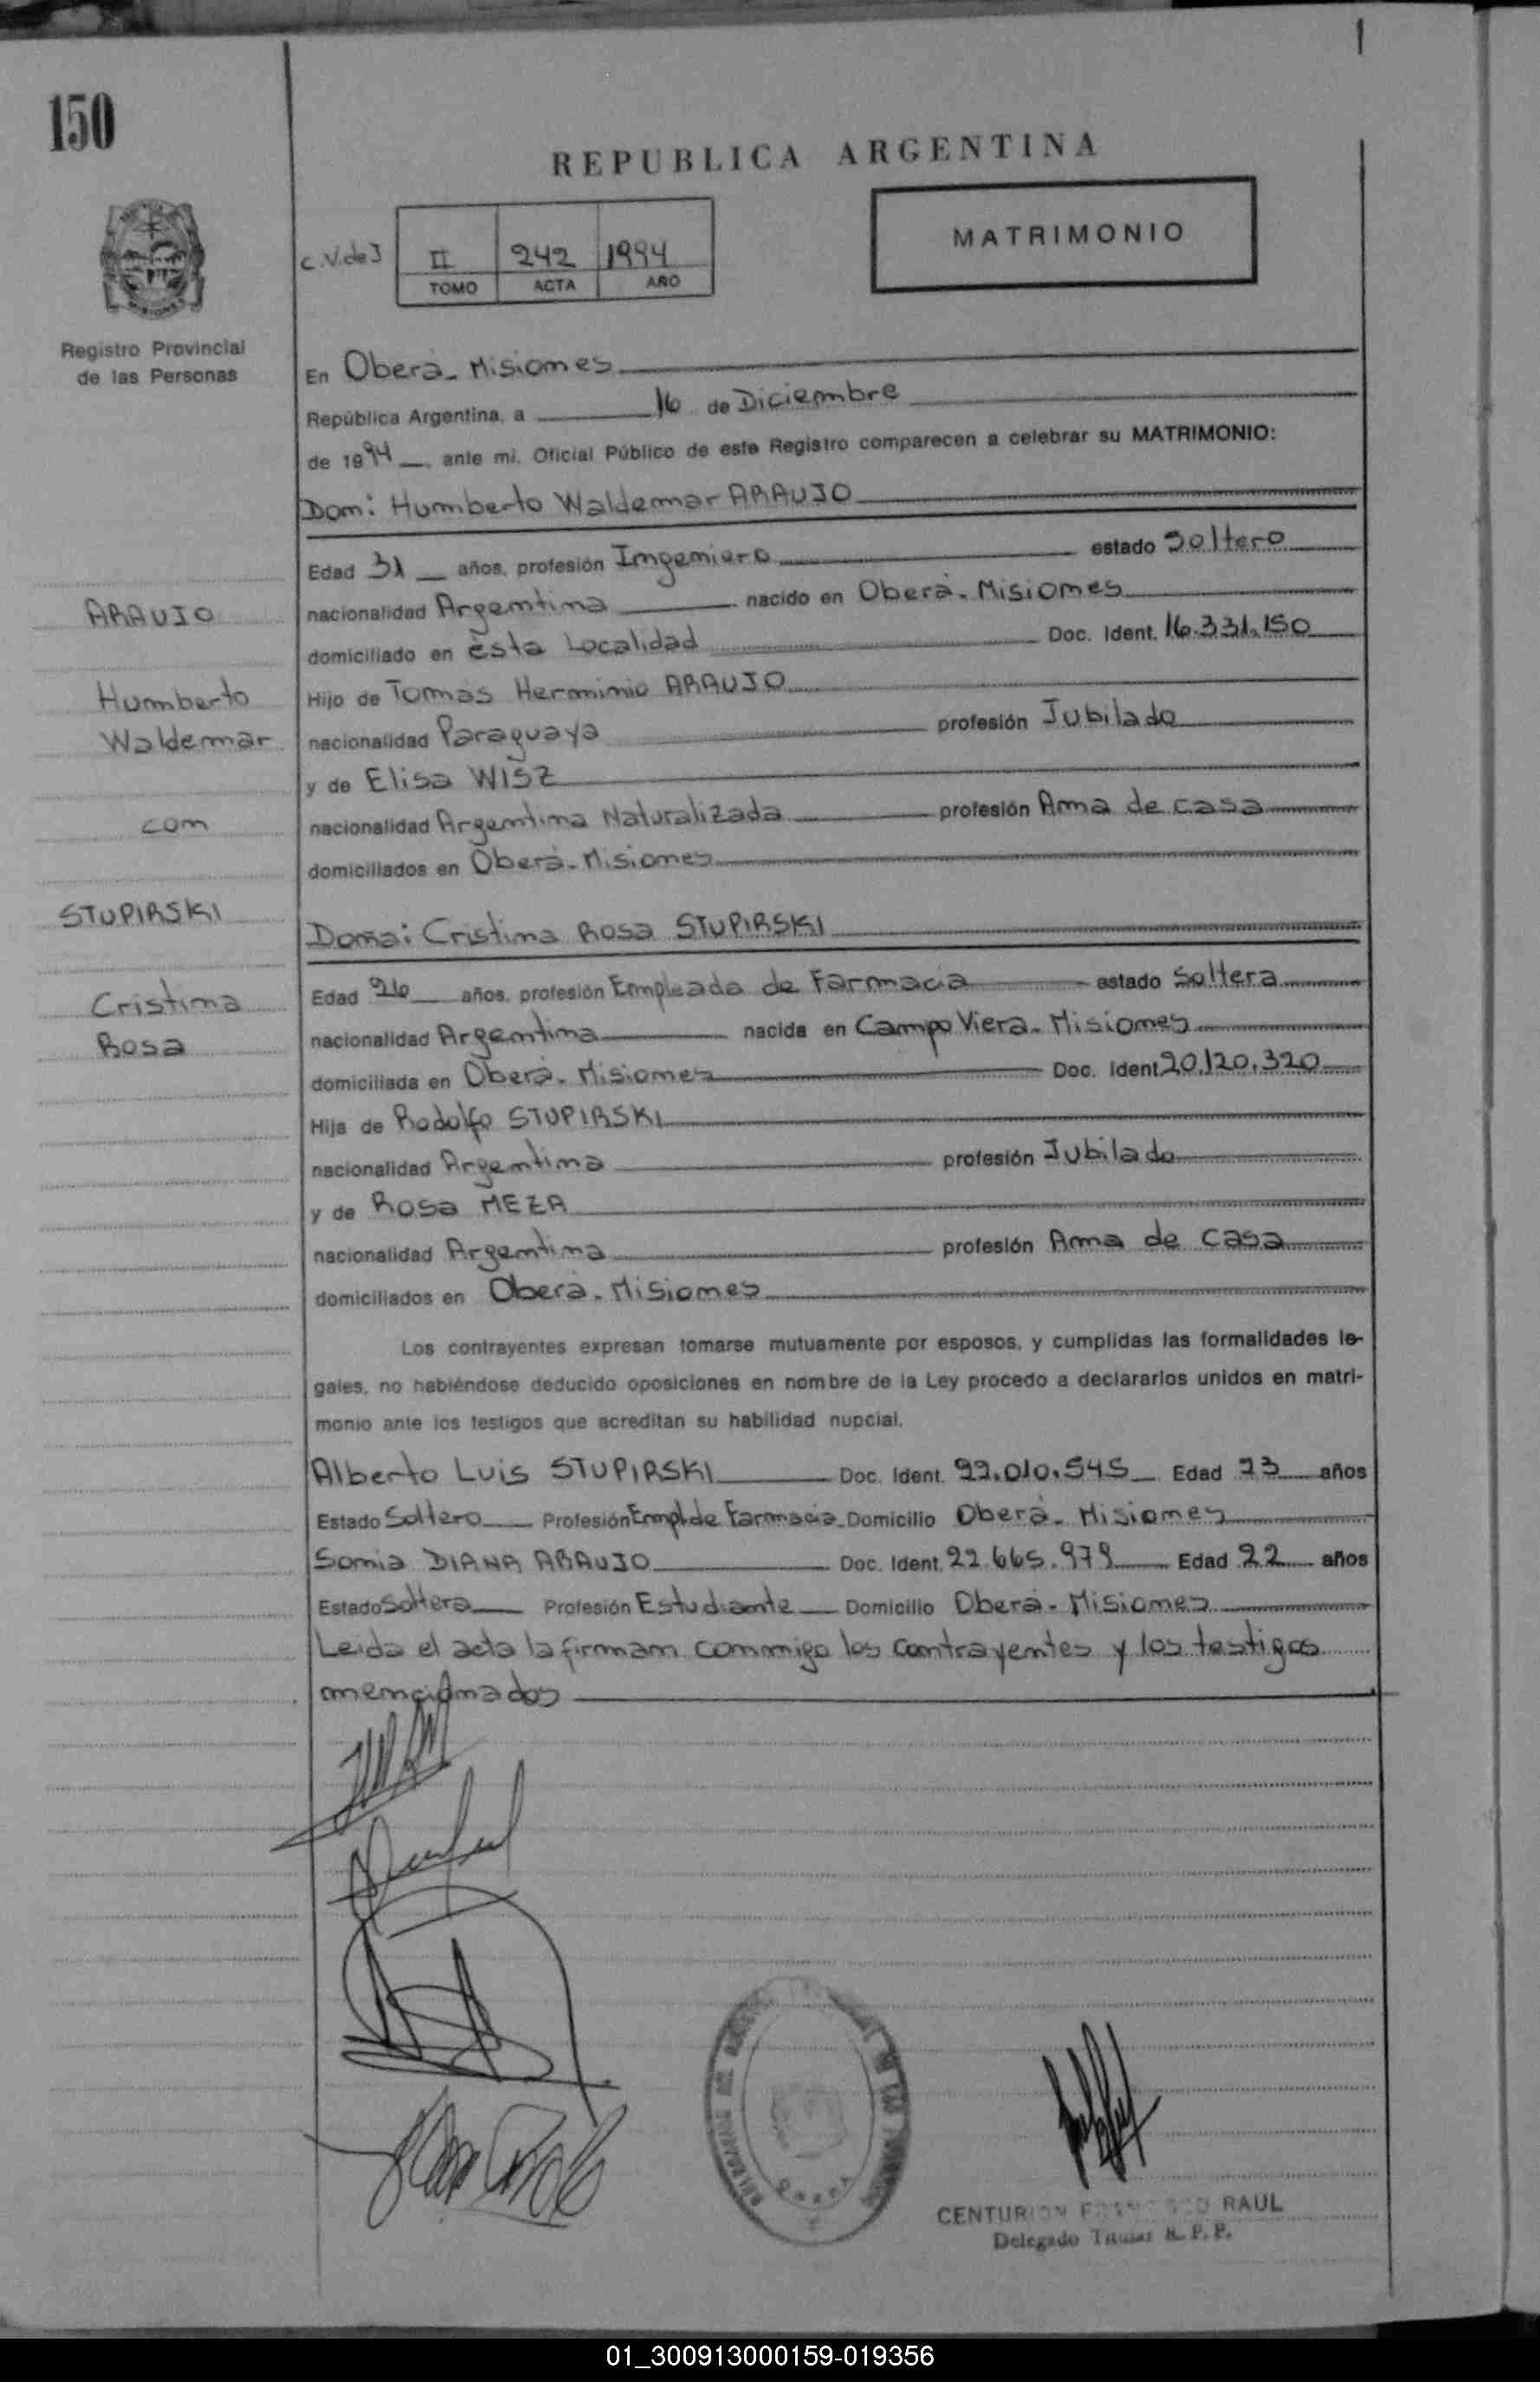 150
REPUBLICA ARGENTINA
MATRIMONIO
C.V.de J
II 242 1994
TOMO ACTA AÑO
Registro Provincial
de las Personas
En Oberá - Misiones
República Argentina, a 16 de Diciembre
de 1994, ante mi, Oficial Público de este Registro comparecen a celebrar su MATRIMONIO:
Don: Humberto Waldemar ARAUJO
Edad 31 años, profesión Ingeniero estado Soltero
ARAUJO
nacionalidad Argentina nacido en Oberá - Misiones
domiciliado en ésta Localidad Doc. Ident. 16.331.150
Humberto
Hijo de Tomas Herminio ARAUJO
Waldemar
nacionalidad Paraguaya profesión Jubilado
y de Elisa WISZ
con
nacionalidad Argentina Naturalizada profesión Ama de casa
domiciliados en Oberá - Misiones
STUPIRSKI
Doña: Cristina Rosa STUPIRSKI
Edad 26 años, profesión Empleada de Farmacia estado Soltera
Cristina
nacionalidad Argentina nacida en Campo Viera - Misiones
Rosa
domiciliada en Oberá - Misiones Doc. Ident 20.120.320
Hija de Rodolfo STUPIRSKI
nacionalidad Argentina profesión Jubilado
y de Rosa MEZA
nacionalidad Argentina profesión Ama de Casa
domiciliados en Oberá - Misiones
Los contrayentes expresan tomarse mutuamente por esposos, y cumplidas las formalidades le-
gales, no habiéndose deducido oposiciones en nombre de la Ley procedo a declararlos unidos en matri-
monio ante los testigos que acreditan su habilidad nupcial.
Alberto Luis STUPIRSKI Doc. Ident. 22.010.545 Edad 23 años
Estado Soltero Profesión Empl de Farmacia Domicilio Oberá - Misiones
Sonia DIANA ARAUJO Doc. Ident. 22.665.979 Edad 22 años
Estado Soltera Profesión Estudiante Domicilio Oberá - Misiones
Leida el acta la firman conmigo los contrayentes y los testigos
mencionados
CENTURION RAUL
Delegado Titular R. P. P.
01_300913000159-019356